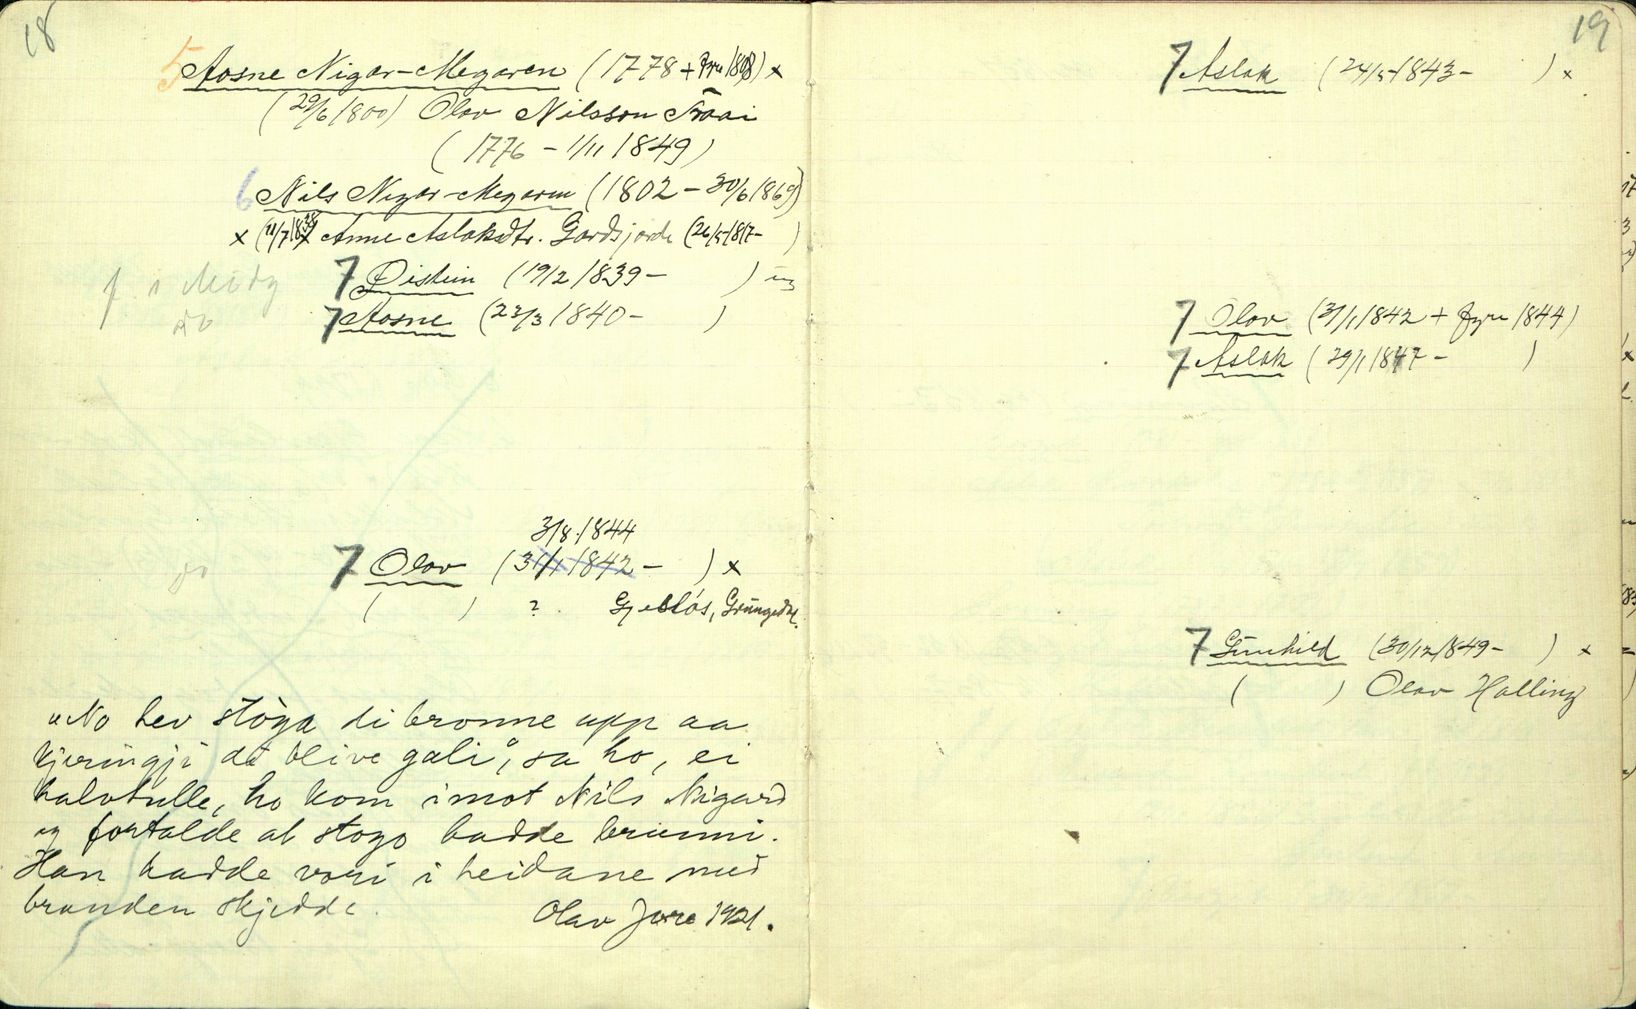 18
5 Aasne Nigar-Megaren (1778 + fyre 1808) x
(29/6 1800) Olav Nilsson Traai
(1776 - 1/11 1849)
6 Nils Nigar-Megaren (1802 - 30/6 1869)
x (11/7 1838) Anne Aslaksdtr. Gardsjorde (26/5 1817- )
f. i Meidg 7 Øistein (19/2 1839- ) ug
do 7 Aasne (23/3 1840- )
3/8 1844
do 7 Olav (31/1 1842 - ) x
( ) ? Gjellós, Grungedal.
"No hev stòga di bronne upp aa
kjeringji di blive gali", sa ho, ei
halvtulle, ho kom imot Nils Nigard
og fortalde at stogo hadde brunni.
Han hadde vori i heidane med
branden skjedde.
Olav Jore 1921.
19
7 Aslak (24/5 1843- ) x
7 Olav (31/1 1842 + fyre 1844)
7 Aslak (29/1 1847- )
7 Gunhild (30/12 1849- ) x
( ) Olav Halling